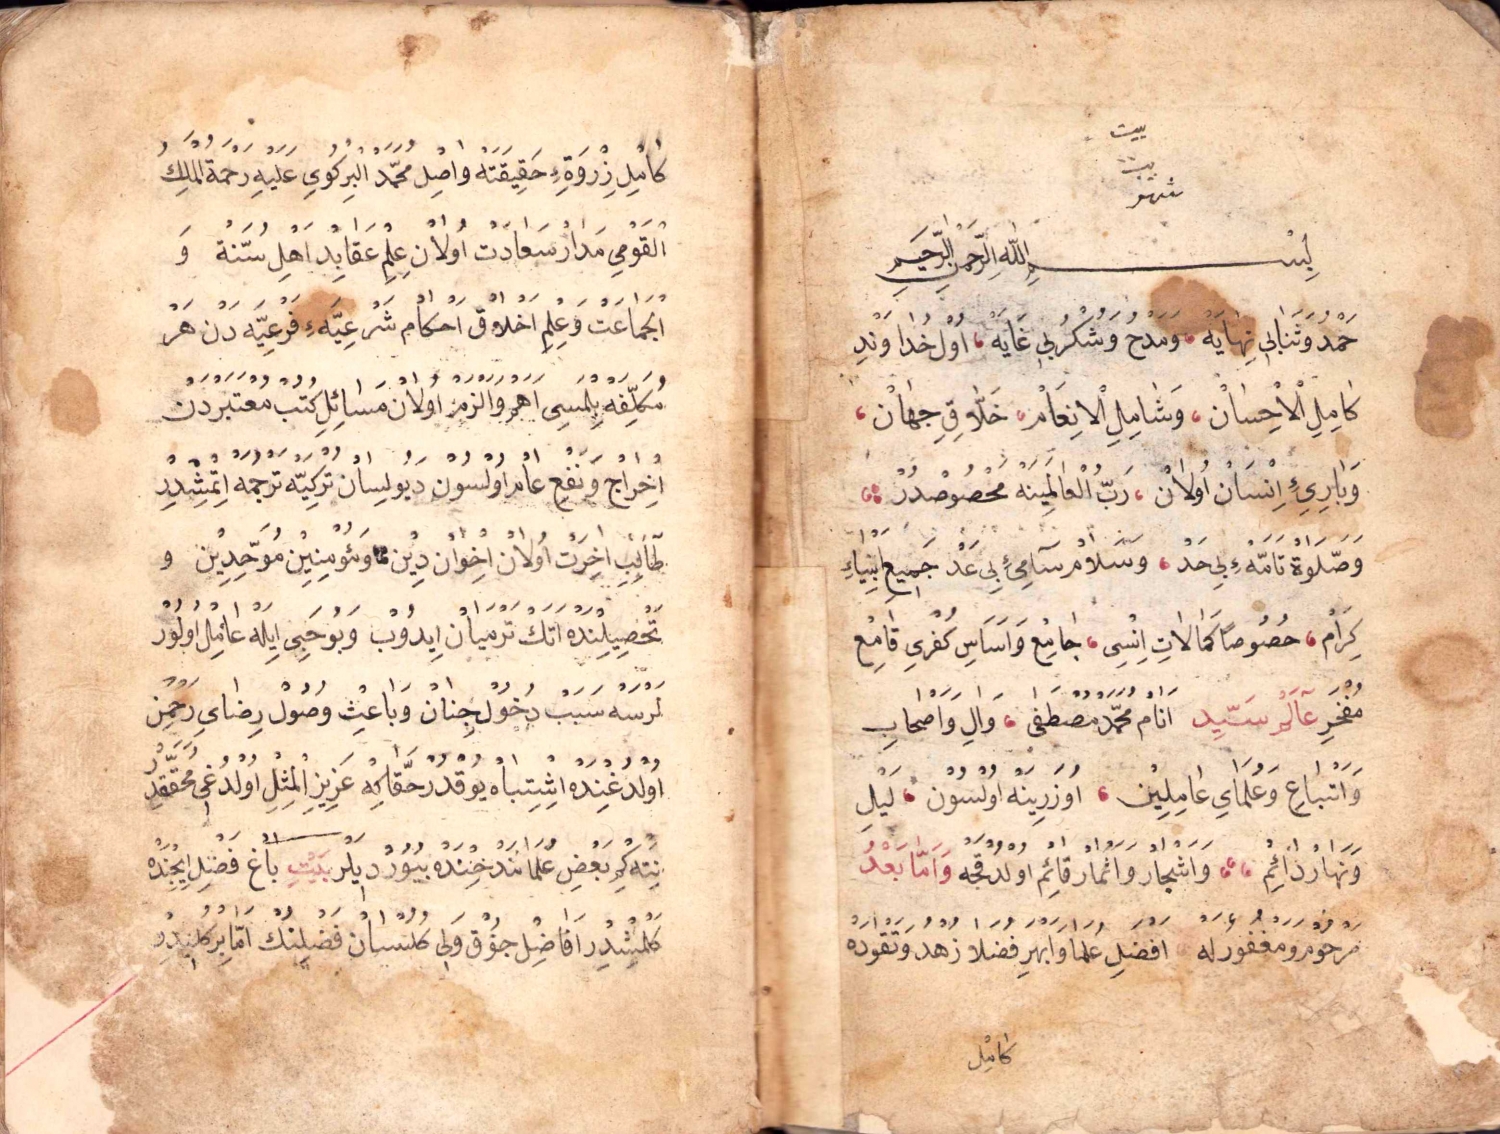 بيت
بيت
بِسْــــمِ اللّٰهِ الرَّحْمٰنِ الرَّحِيمِ
حَمْدُ وَثَنَايِ بِي نِهَايَهْ ، وَمَدْحُ وَشُكْرُ بِي غَايَهْ ، اُوْلْ خُدَاوَنْدِ
كَامِلِ الْاِحْسَانْ ، وَشَامِلِ الْاِنْعَامْ ، خَلَّاقِ جِهَانْ ،
وَبَارِئِ اِنْسَانْ اُولَانْ ، رَبُّ الْعَالَمِينَهْ مَخْصُوصْدُرْ
وَصَلَوٰةِ تَامَّهْءِ بِي حَدْ ، وَسَلَامِ سَامِئِ بِي عَدْ جَمِيعِ اَنْبِيَاءِ
كِرَامْ ، خُصُوصًا كَمَالَاتِ اِنْسِى ، جَامِعْ وَاَسَاسِ كُفْرِى قَامِعْ
مَفْخَرِ عَالَمْ سَيِّدِ اَنَامْ مُحَمَّدْ مُصْطَفٰى ، وَاٰلِ وَاَصْحَابِ
وَاَتْبَاعِ وَعُلَمَايِ عَامِلِينْ ، اُوزَرِينَهْ اُولْسُونْ ، لَيْلِ
وَنَهَارْ دَائِمْ ، وَاَشْجَارْ وَاَثْمَارْ قَائِمْ اُولْدُقْجَهْ وَاَمَّا بَعْدُ
مَرْحُومْ وَمَغْفُورْ لَهْ اَفْضَلِ عُلَمَا وَاَبْهَرِ فُضَلَا زُهْدْ وَتَقْوَدَهْ
كَامِلْ
كَامِلْ ذِرْوَةِءِ حَقِيقَتَهْ وَاصِلْ مُحَمَّدْ الْبِرْكَوِي عَلَيْهِ رَحْمَةُ الْمَلِكُ
الْقَوِمِي مَدَارْ سَعَادَتْ اُولَانْ عِلْمِ عَقَايِدِ اَهْلِ سُنَّةْ وَ
الْجَمَاعَتْ وَعِلْمِ اَخْلَاقْ اَحْكَامِ شَرْعِيَّهْءِ فَرْعِيَّهْ دَنْ هَرْ
مُكَلَّفَهْ بِلْمَسِى اَهَمْ وَالْزَمْ اُولَانْ مَسَائِلِ كُتُبِ مُعْتَبَرْدَنْ
اِخْرَاجْ وَنَفْعِ عَامْ اُولْسُونْ دِيُو لِسَانِ تُرْكِيَّهْ تَرْجُمَهْ اِتْمِشْدِرْ
طَالِبِ اٰخِرَتْ اُولَانْ اِخْوَانِ دِينْ وَمُؤْمِنِينْ مُوَحِّدِينْ وَ
تَحْصِيلِنْدَهْ اتك تَرْمِيَانْ اِيدُوبْ وَبُوجَبِى اِيلَهْ عَامِلْ اُولُورْ
لَرْسَهْ سَبَبْ دُخُولِ جِنَانْ وَبَاعِثِ وُصُولِ رِضَايِ رَحْمٰنْ
اُولْدُغِنْدَهْ اِشْتِبَاهْ يُوقْدُرْ حَقَّاكِهْ عَزِيزِ الْمِثِلْ اُولْدُغِى مُحَقَّقْدِرْ
نِتَهْ كِمْ بَعْضِ عُلَمَا مَدْحِنْدَهْ بِيُورْدِيلَرْ بَيْتِ بَاغِ فَضْلْ اِيچِنْدَهْ
كَلْمِشْدِرْ اَفَاضِلْ جُوقْ وَلِى كُلِسْتَانْ فَضْلِنِكْ اَمَّا بِرْ كُلِيدِرْ